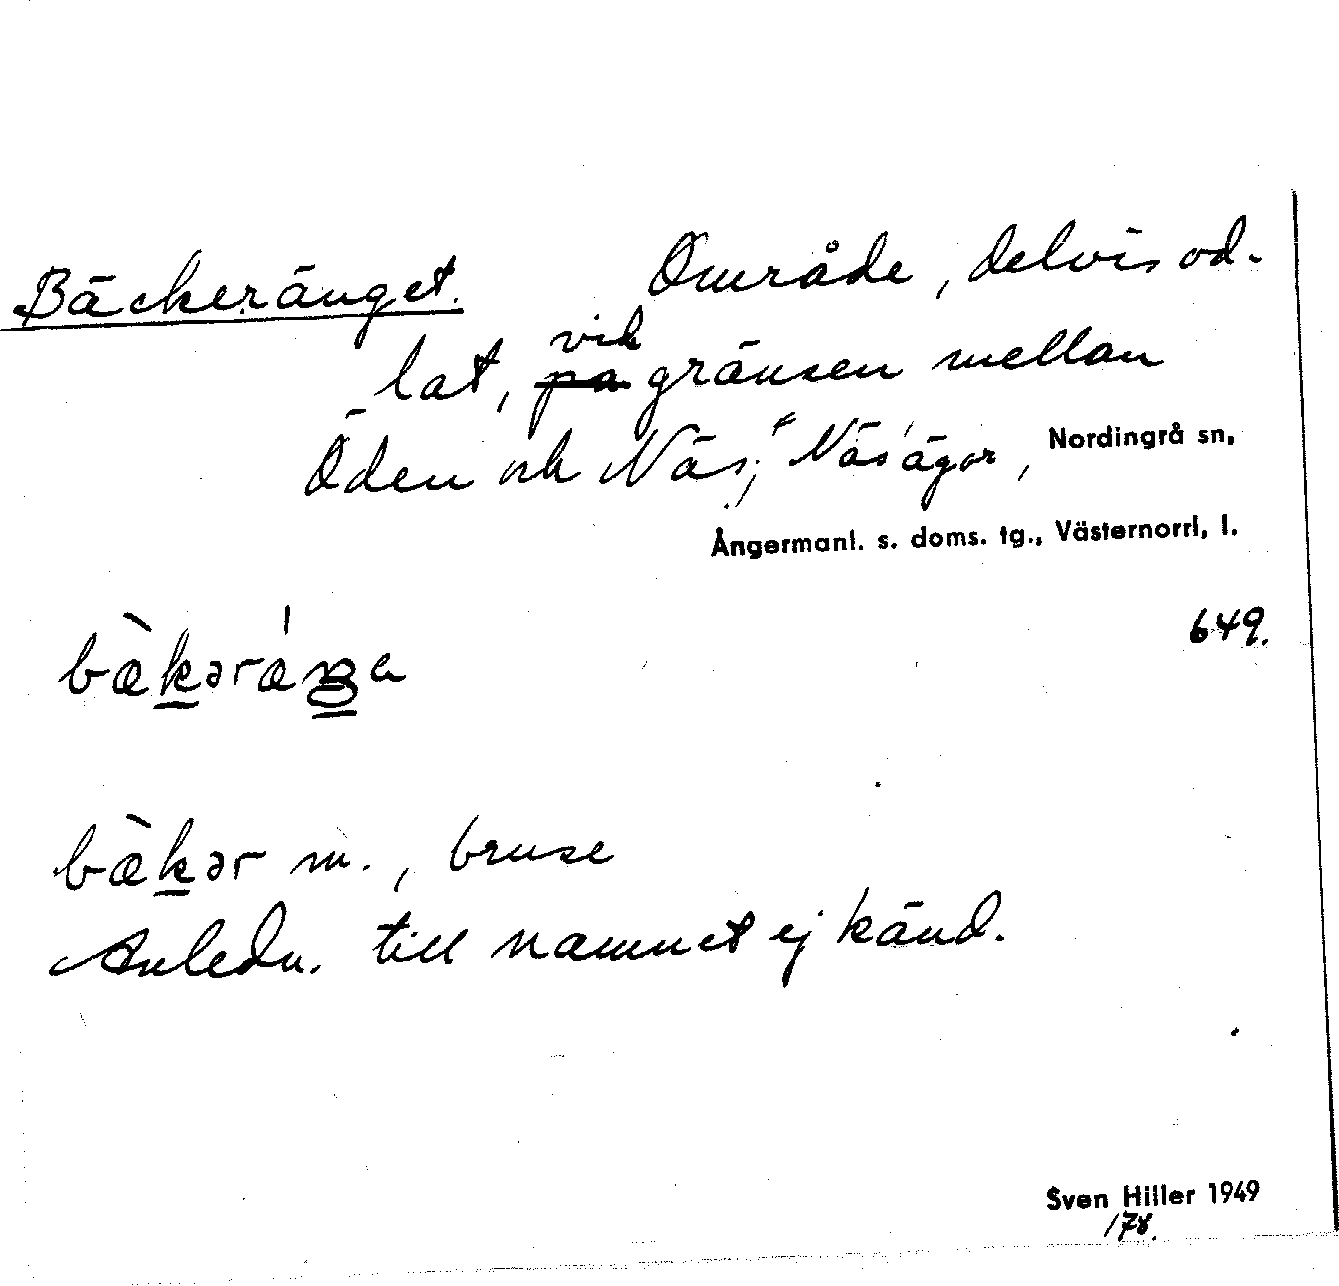 Bäckeränget. Område, delvis od-
lat, på vid gränsen mellan
Öden och Näs; Näs' ägor, Nordingrå sn,
Ångermanl. s. doms. tg., Västernorrl, l.
649.
bæ̀kəræ̍ŋa
bæ̀kər m., bruse
Anledn. till namnet ej känd.
Sven Hiller 1949